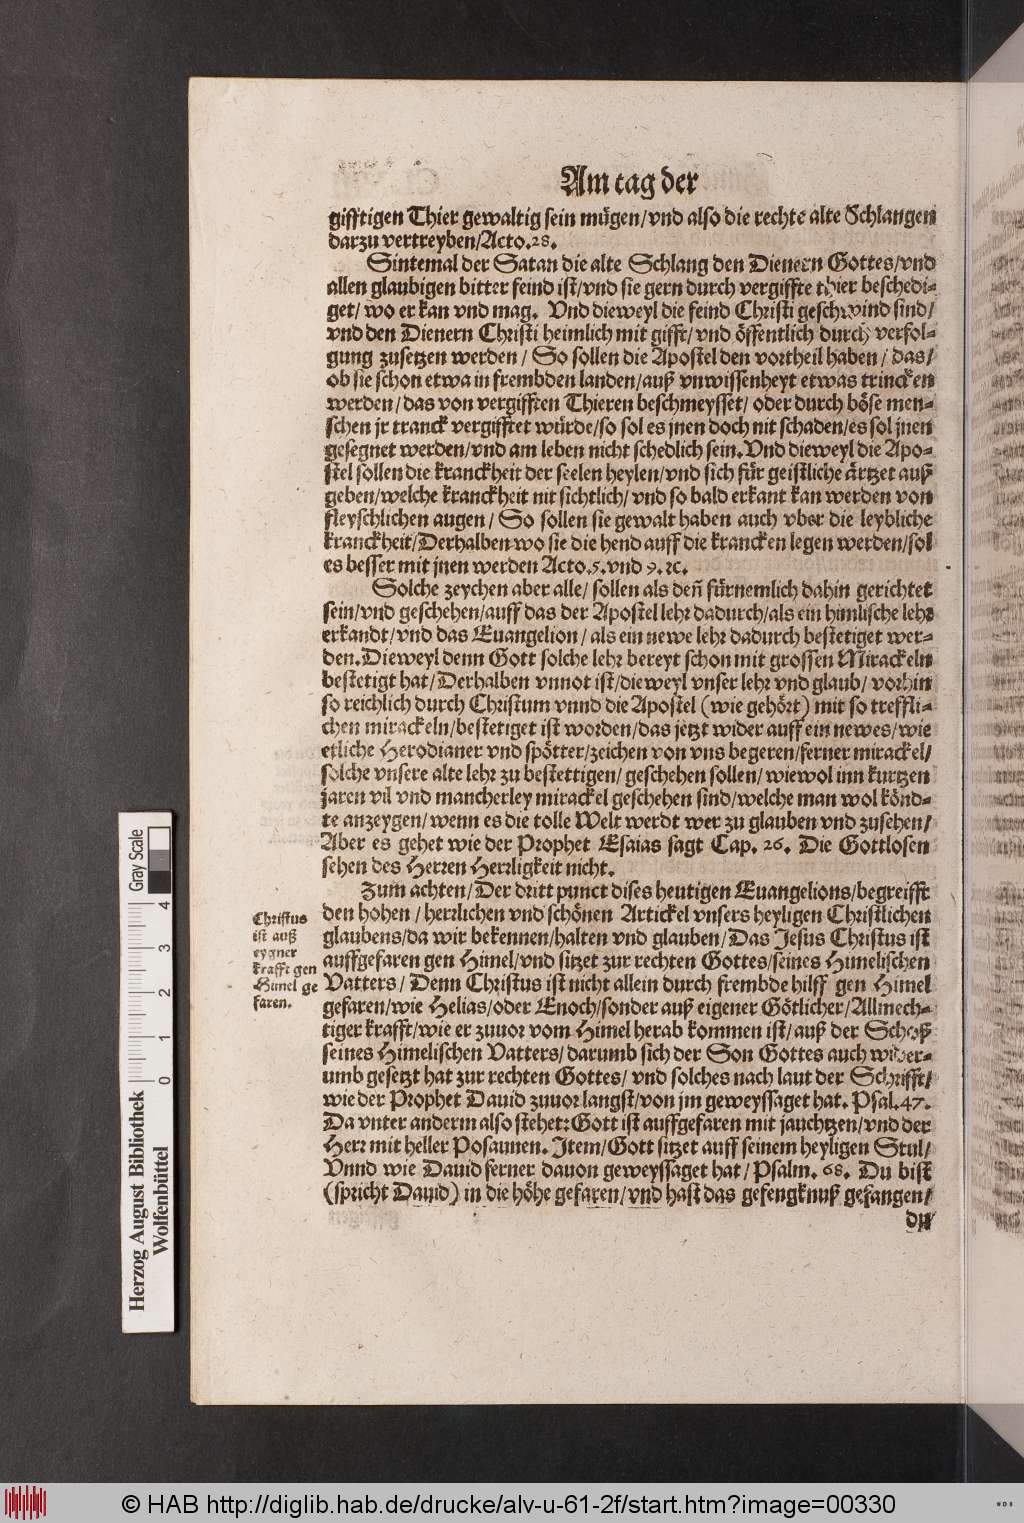 Am tag der
gifftigen Thier gewaltig sein mügen/vnd also die rechte alte Schlangen
darzu vertreyben/Acto.28.
Sintemal der Satan die alte Schlang den Dienern Gottes/vnd
allen glaubigen bitter feind ist/vnd sie gern durch vergiffte thier beschedi-
get/ wo er kan vnd mag. Vnd dieweyl die feind Christi geschwind sind/
vnd den Dienern Christi heimlich mit gifft/ vnd öffentlich durch verfol-
gung zusetzen werden / So sollen die Apostel den vortheil haben / das/
ob sie schon etwa in frembden landen/auß vnwissenheyt etwas trincken
werden/das von vergifften Thieren beschmeysset/ oder durch böse men-
schen jr tranck vergifftet würde/so sol es jnen doch nit schaden/es sol jnen
gesegnet werden/vnd am leben nicht schedlich sein.Vnd dieweyl die Apo-
stel sollen die kranckheit der seelen heylen/vnd sich für geistliche ärtzet auß
geben/welche kranckheit nit sichtlich/ vnd so bald erkant kan werden von
fleyschlichen augen/ So sollen sie gewalt haben auch vber die leybliche
kranckheit/Derhalben wo sie die hend auff die krancken legen werden/sol
es besser mit jnen werden Acto.5.vnd 9.ꝛc.
Solche zeychen aber alle/ sollen als deñ fürnemlich dahin gerichtet
sein/vnd geschehen/auff das der Apostel lehr dadurch/als ein himlische lehr
erkandt/vnd das Euangelion/ als ein newe lehr dadurch bestetiget wer-
den.Dieweyl denn Gott solche lehr bereyt schon mit grossen Mirackeln
bestetigt hat/Derhalben vnnot ist/dieweyl vnser lehr vnd glaub/ vorhin
so reichlich durch Christum vnnd die Apostel (wie gehört) mit so treffli-
chen mirackeln/bestetiget ist worden/das jetzt wider auff ein newes/wie
etliche Herodianer vnd spötter/zeichen von vns begeren/ferner mirackel/
solche vnsere alte lehr zu bestettigen/ geschehen sollen/ wiewol inn kurtzen
jaren vil vnd mancherley mirackel geschehen sind/welche man wol könd-
te anzeygen/ wenn es die tolle Welt werdt wer zu glauben vnd zusehen/
Aber es gehet wie der Prophet Esaias sagt Cap. 26. Die Gottlosen
sehen des Herren Herrligkeit nicht.
Zum achten/ Der dritt punct dises heutigen Euangelions/begreifft
den hohen / herrlichen vnd schönen Artickel vnsers heyligen Christlichen
glaubens/da wir bekennen/halten vnd glauben/ Das Jesus Christus ist
auffgefaren gen Himel/vnd sitzet zur rechten Gottes/seines Himelischen
Vatters/ Denn Christus ist nicht allein durch frembde hilff gen Himel
gefaren/wie Helias/oder Enoch/sonder auß eigener Götlicher/Allmech-
tiger krafft/wie er zuuor vom Himel herab kommen ist/ auß der Schoß
seines Himelischen Vatters/ darumb sich der Son Gottes auch wider-
umb gesetzt hat zur rechten Gottes/ vnd solches nach laut der Schrifft/
wie der Prophet Dauid zuuor langst/von jm geweyssaget hat. Psal.47.
Da vnter anderm also stehet: Gott ist auffgefaren mit jauchtzen/vnd der
Herr mit heller Posaunen. Item/Gott sitzet auff seinem heyligen Stul/
Vnnd wie Dauid ferner dauon geweyssaget hat/ Psalm. 68. Du bist
(spricht Dauid) in die höhe gefaren/vnd hast das gefengknuß gefangen/
du
Christus
ist auß
eygner
krafft gen
Himel ge
faren.
Gray Scale
0 1 2 3 4
Herzog August Bibliothek
Wolfenbüttel
© HAB http://diglib.hab.de/drucke/alv-u-61-2f/start.htm?image=00330
WDB